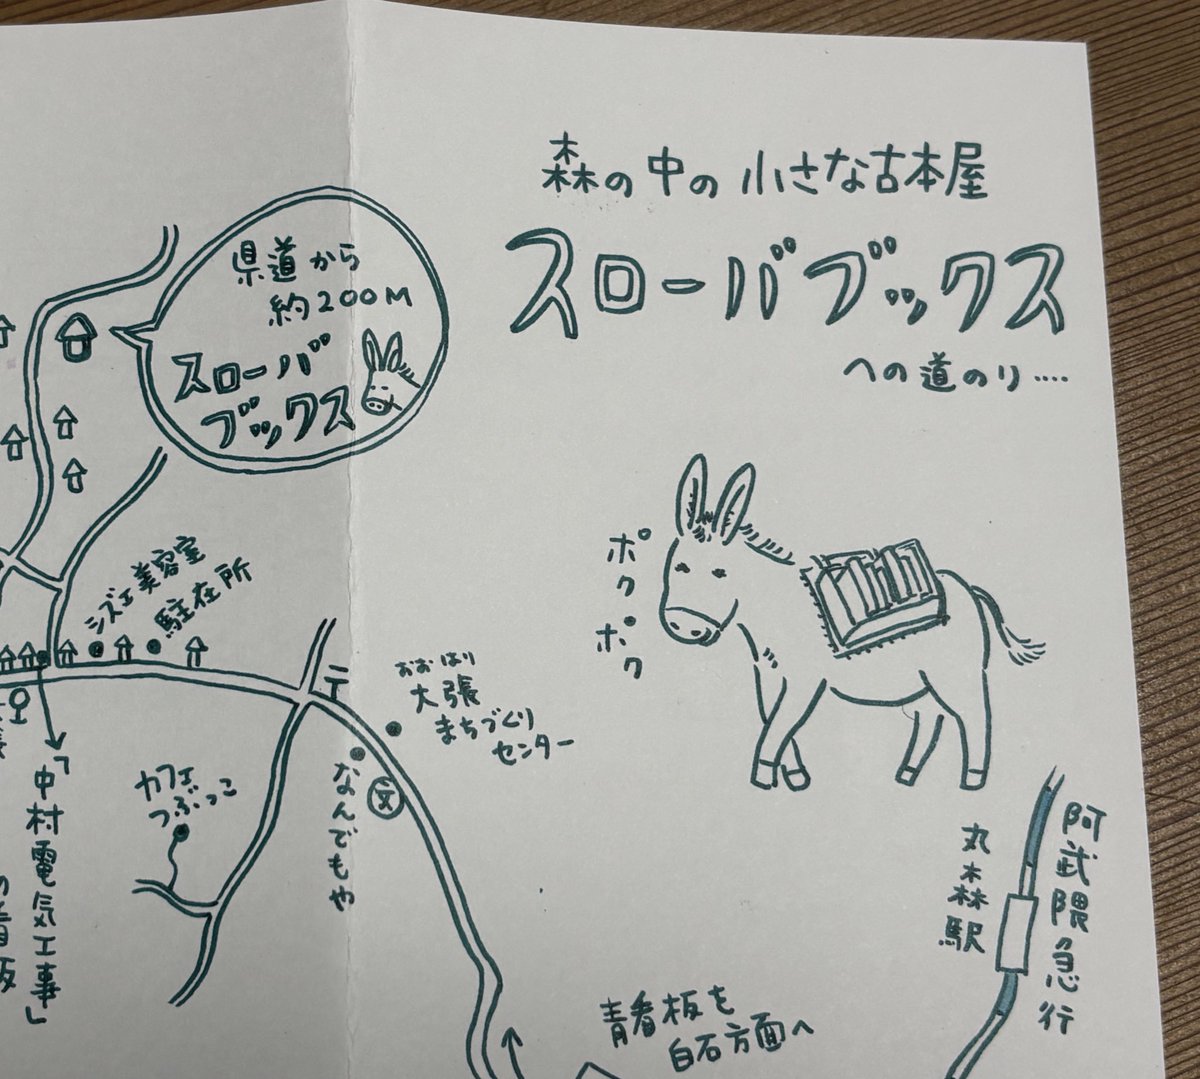 森の中の小さな古本屋
スローバブックス
への道のり‥‥
県道から
約200M
スローバ
ブックス
ポクポク
シズエ美容室
駐在所
〒
おおはり
大張
まちづくり
センター
なんでもや
文
カフェ
つぶっこ
「中村電気工事」
の看板
丸森駅
阿武隈急行
青看板を
白石方面へ